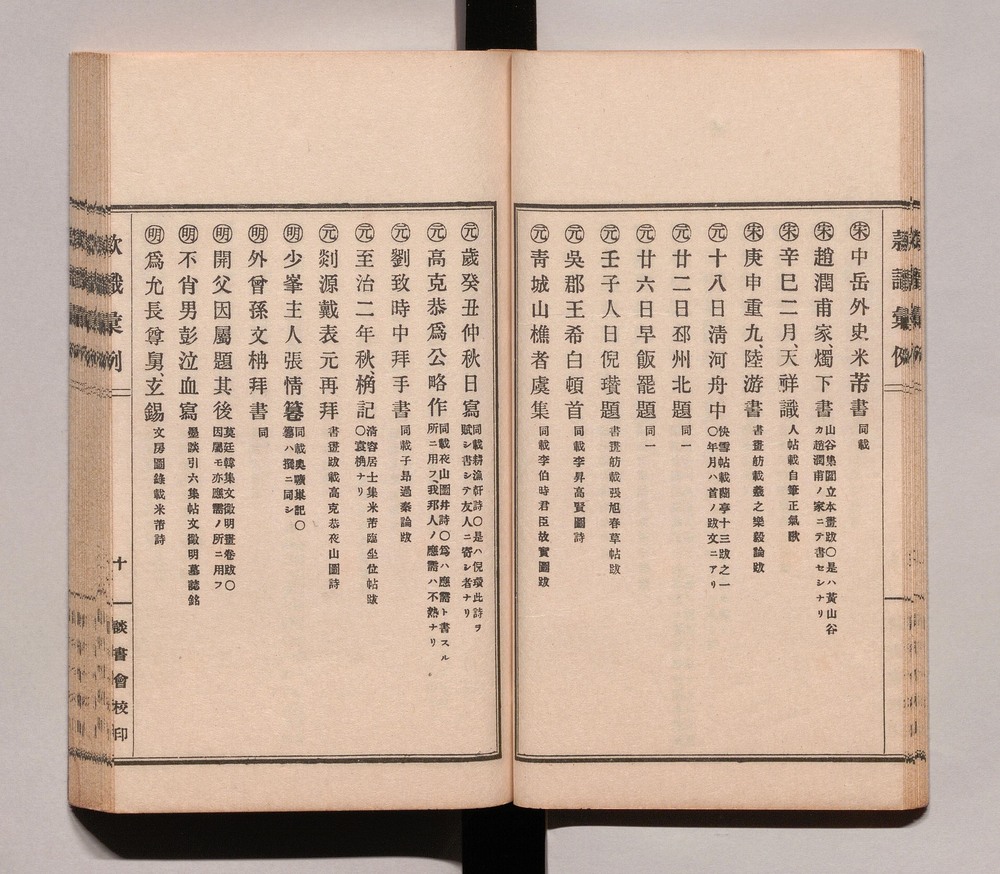 ㊍宋 中岳外史、米芾書 同載
宋 趙潤甫家、燭下書 山谷集圜立本畫跋〇是ハ黃山谷
カ趙潤甫ノ家ニテ書セシナリ
宋 辛巳二月、天祥識 人帖載自筆正氣歌
宋 庚申重九、陸游書 書畫舫載羲之樂毅論跋
元 十八日淸河舟中 快雪帖載蘭亭十三跋之一
〇年月ハ首ノ跋文ニアリ
元 廿二日邳州北題 同一
元 廿六日早飯罷題 同一
元 壬子人日倪瓚題 書畫舫載張旭春草帖跋
元 吳郡王希白頓首 同載李昇高賢圖詩
元 靑城山樵者虞集 同載李伯時君臣故實圖跋
元 歲癸丑仲秋日寫 同載耕漁軒詩〇是ハ倪瓚此詩ヲ
賦シ書シテ友人ニ寄シ者ナリ
元 高克恭爲公略作 同載夜山圖幷詩〇爲ハ應需ト書スル
所ニ用フ、我邦人ノ應需ハ不熟ナリ
元 劉致時中拜手書 同載子昻過秦論跋
元 至治二年秋、桷記 淸容居士集米芾臨坐位帖跋
〇袁桷ナリ
元 剡源戴表元再拜 書畫跋載高克恭夜山圖詩
明 少峯主人張情篹 同載奥曠巢記〇
篹ハ撰ニ同シ
明 外曾孫文枏拜書 同
明 開父因屬題其後 莫廷韓集文徵明畫卷跋〇
因屬モ亦應需ノ所ニ用フ
明 不肖男彭泣血寫 墨談引六集帖文徵明墓誌銘
明 爲允長尊舅、玄錫 文房圖錄載米芾詩
款識彙例
十
談書會校印